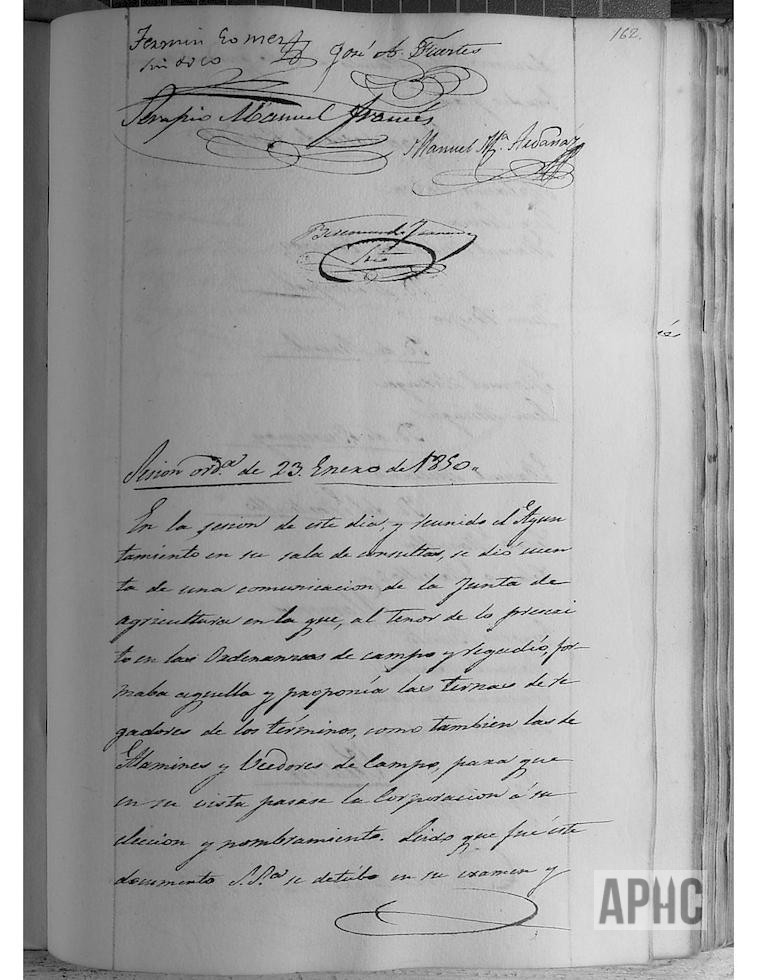 162.
Fermin Gomez José A. Fuertes
Sindico
Serapio Manuel Francés
Manuel Mª. Ardanaz
Srio
Sesion ordª. de 23. Enero de 1850..
En la sesion de este dia, y reunido el Ayun
tamiento en su sala de consultas, se dió cuen
ta de una comunicacion de la Junta de
agricultura en la que, al tenor de lo prescri
to en las Ordenanzas de campo y regadío, for-
maba aquella y proponía las ternas de re
gadores de los términos, como tambien las de
Alamines y Veedores de Campo, para que
en su vista pasase la Corporacion á su
eleccion y nombramiento. Leido que fué este
documento S.Sª. se detúbo en su examen y
és
APHC